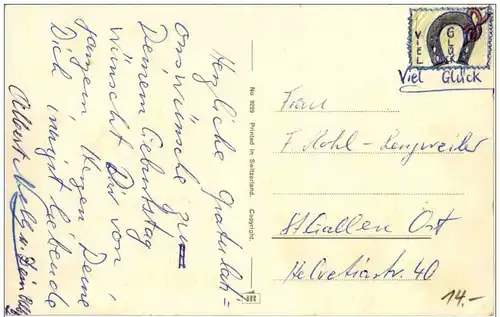 Herzliche Gratulat=
onswünsche zum
Deinem Geburtstag
wünscht Dir von
ganzem Herzen Deine
Dich innigst liebende
Nelly u.
No 9899 Printed in Switzerland. Copyright.
VIEL
GLÜCK
Viel Glück
Frau
F Hohl-Lengweiler
St Gallen Ort
Helvetiastr. 40
14.-